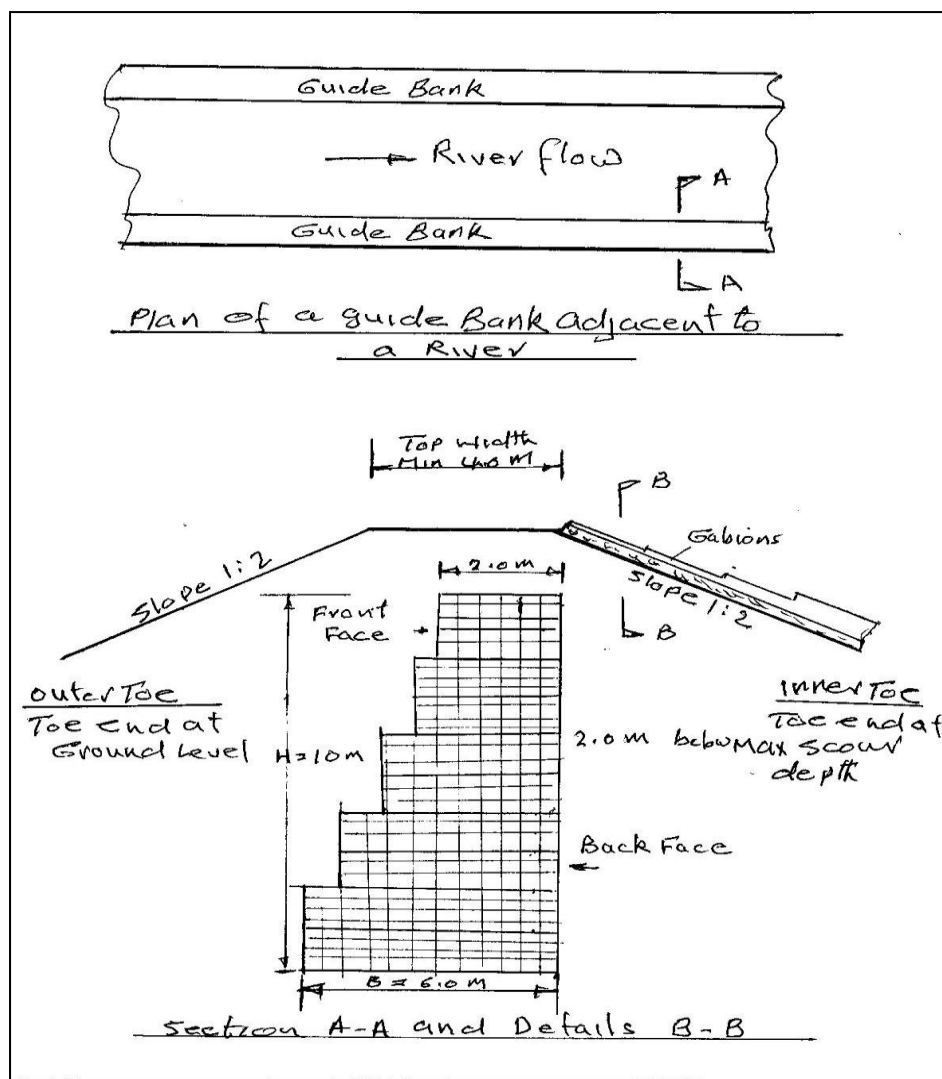 Guide Bank
River flow
A
Guide Bank
A
Plan of a guide Bank adjacent to
a River
Top width
Min 4.0 M
B
Gabions
Slope 1:2
2.0 M
Slope 1:2
Front
Face
B
outer Toe
Toe end at
Ground Level
H=10m
inner Toe
Toe end at
2.0 m below Max scour
depth
Back Face
B = 6.0 M
Section A-A and Details B-B